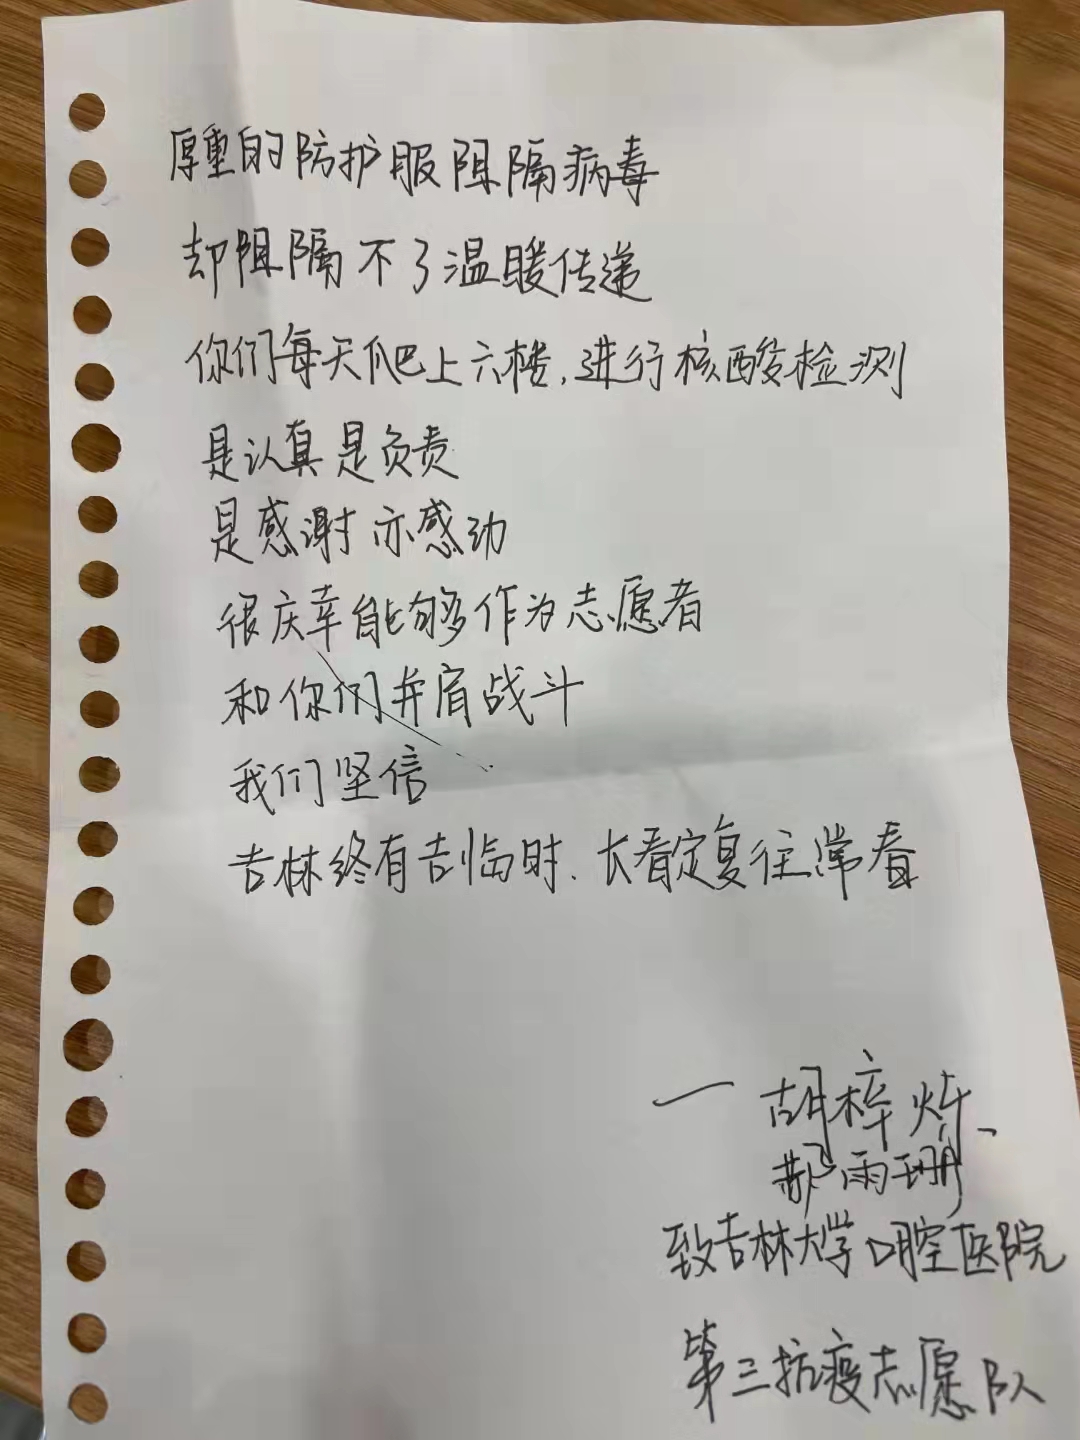 厚重的防护服阻隔病毒
却阻隔不了温暖传递
你们每天爬上六楼,进行核酸检测
是认真是负责
是感谢亦感动
很庆幸能够作为志愿者
和你们并肩战斗
我们坚信
吉林终有吉临时、长春定复往常春
一胡梓烁、
郝雨珊
致吉林大学口腔医院
第三抗疫志愿队